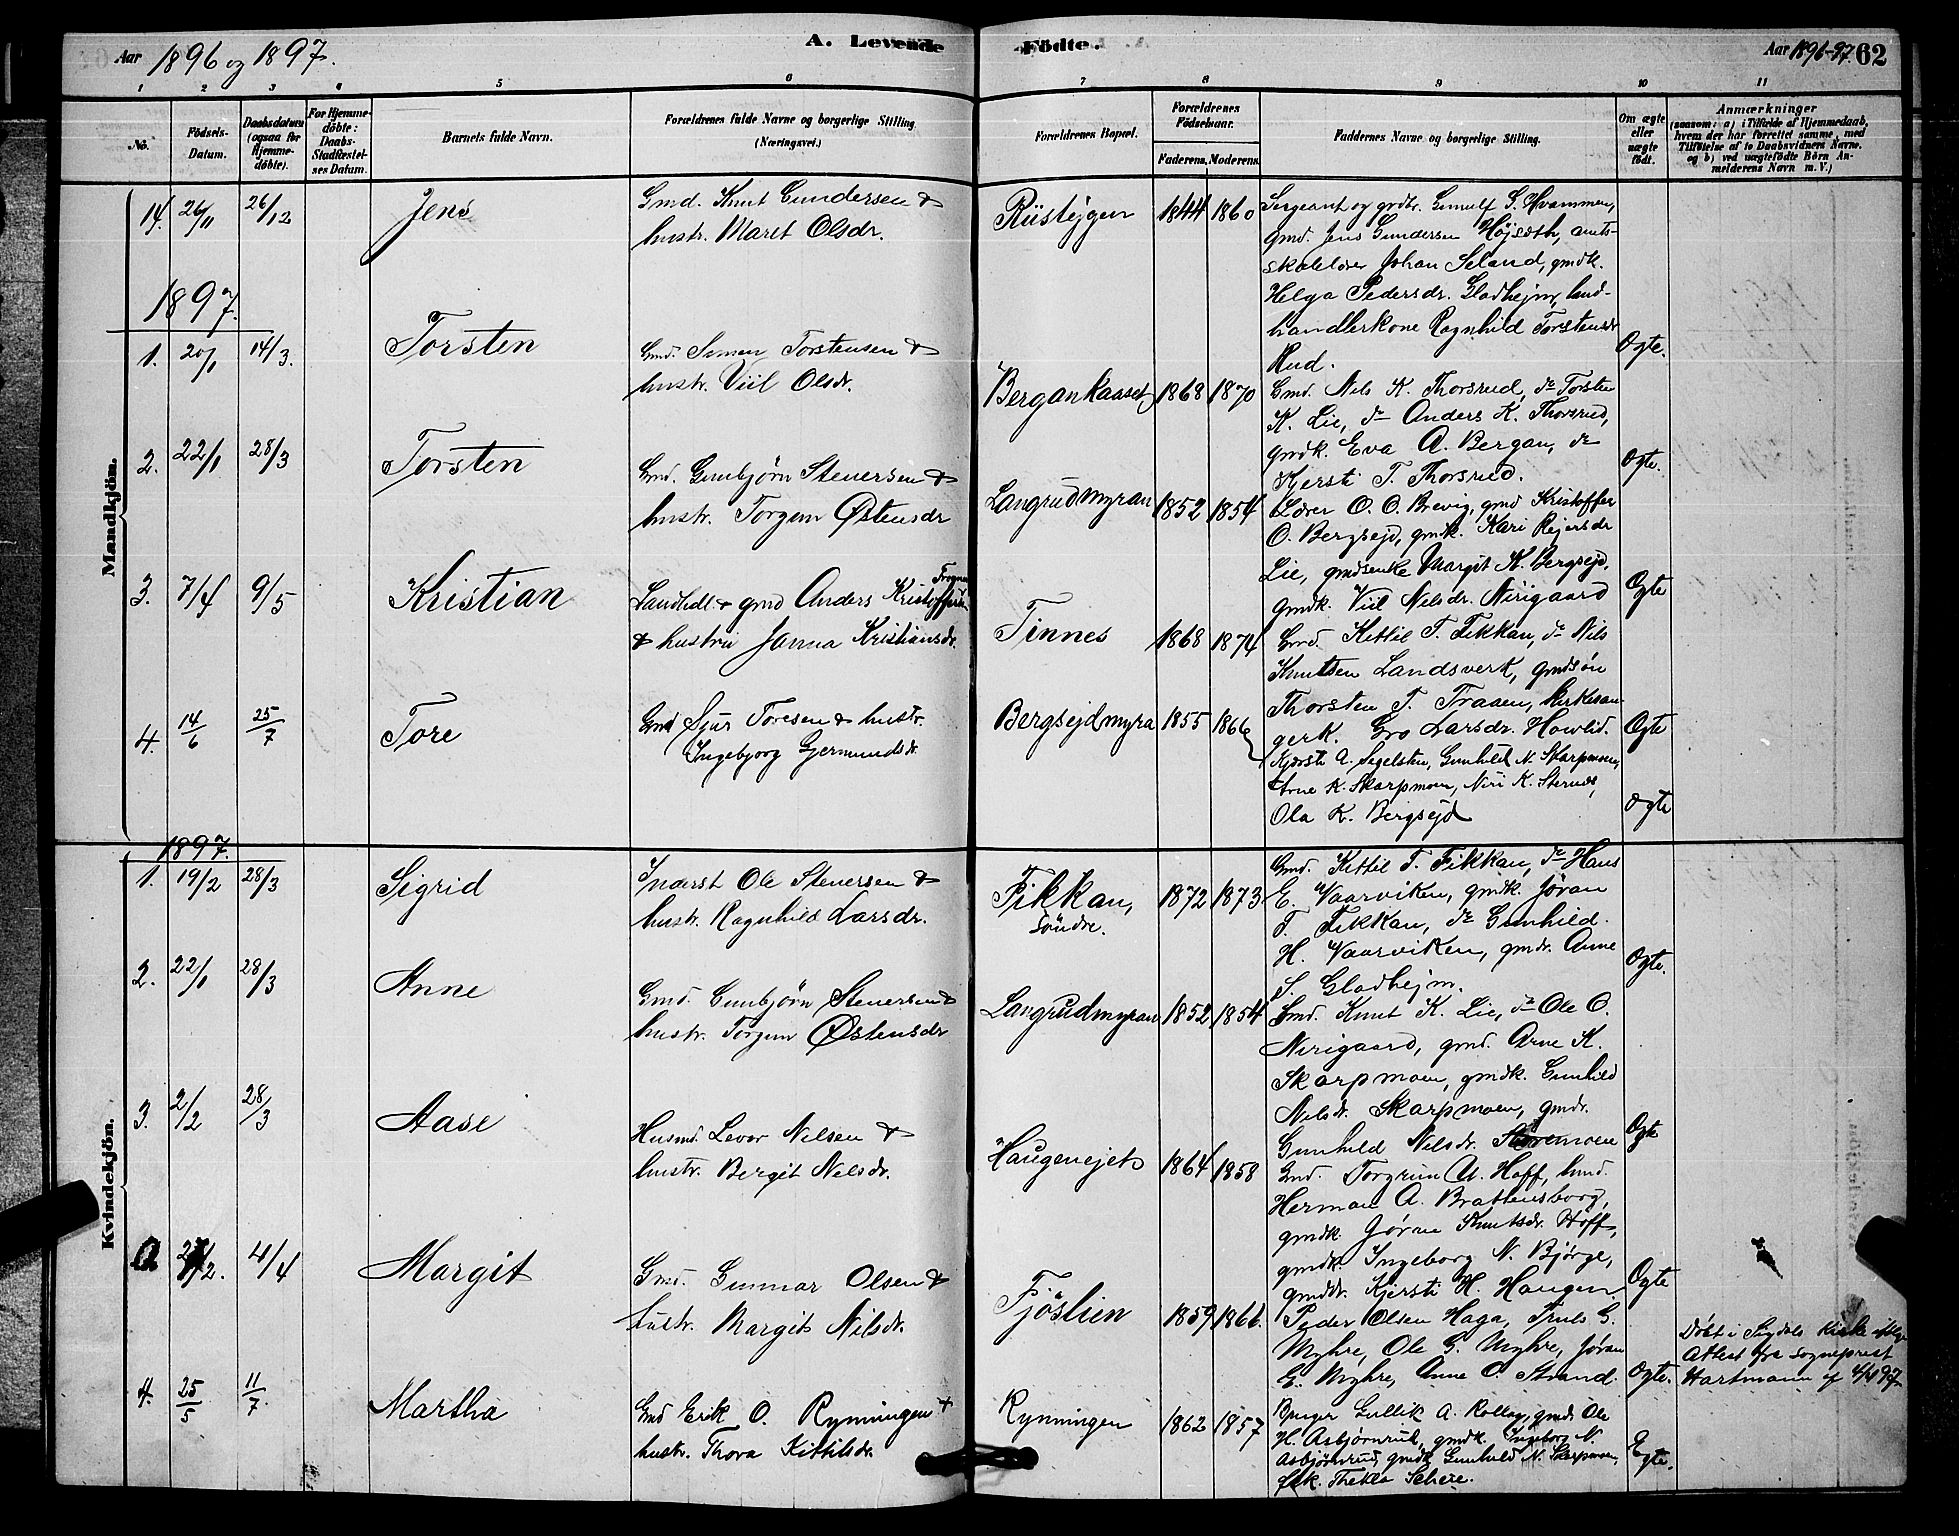 Aar 1896 og 1897.
A. Levende Födte.
Aar 1896-97. 62
1 2 3 4 5 6 7 8 9 10 11
No.
Födsels-Datum.
Daabsdatum (ogsaa for Hjemme-döbte).
For Hjemme-döbte: Daabs-Stadfæstel-ses Datum.
Barnets fulde Navn.
Forældrenes fulde Navne og borgerlige Stilling. (Næringsvei.)
Forældrenes Bopæl.
Forældrenes Födselsaar.
Faderens. Moderens.
Faddernes Navne og borgerlige Stilling.
Om ægte eller uægte födt.
Anmærkninger
(saasom: a) i Tilfælde af Hjemmedaab, hvem der har forrettet samme, med Tilföielse af to Daabsvidners Navne. og b) ved uægtefödte Börn An-melderens Navn m. V.)
Mandkjön.
14. 26/11 26/12 Jens
Gmd. Knut Gundersen &
hustr. Maret Olsdr.
Rustejgen 1844 1860
Sergeant og grdbr. Gunulf S. Hvammen,
gmd. Jens Gundersen Højseth, amts-
skolelærer Johan Seland, gmdk.
Helga Pedersdr. Gladhejm, land-
handlerkone Ragnhild Torstensdr
Rud.
Ægte.
1897.
1. 20/1 14/3. Torsten
Gmd. Simen Torstensen &
hustr. Viil Olsdr.
Bergankaaset 1868 1870
Gmd. Nils K. Thorsrud, do Torsten
K. Lie, do Anders K. Thorsrud,
gmdk. Eva A. Bergan, do
Kjersti T. Thorsrud.
Ægte.
2. 22/1 28/3 Torsten
Gmd. Gunbjørn Stenersen &
hustr. Torgun Østensdr
Langrudmyran 1852 1854
Lærer O. O. Brevig, gmd Kristoffer
O. Bergsejd, gmdk. Kari Rejersdr
Lie, gmdsenke Margit K. Bergsejd,
gmdk. Viil Nilsdr. Nirigaard
Ægte
3. 7/4 9/5 Kristian
Landhdl. & gmd Anders Kristoffersen
& hustru Janna Kristiansdr.
Tinnes 1868 1874
Gmd. Kittil T. Fikkan, do Nils
Knutsen Landsverk, gmdsøn
Thorsten T. Traaen, kirkesan-
gerk. Gro Larsdr. Howlid.
Ægte
4. 14/6 25/7 Tore
Gmd Sjur Toresen & hustr.
Ingebjorg Germundsdr.
Bergsejdmyra 1855 1866
Kjersti A. Segelsten, Gunhild N. Skarpmoen,
Arne K. Skarpmoen, Niri K. Sternes,
Ola K. Bergsejd
Ægte
Kvindekjön.
1897.
1. 19/2 28/3 Sigrid
Inderst Ole Stenersen &
hustr. Ragnhild Larsdr.
Fikkan, Söndre. 1872 1873
Gmd. Kittil T. Fikkan, do Hans
E. Vaarviken, gmdk. Jöran
T. Fikkan, do Gunhild
H. Vaarviken, gmdr. Anne
S. Gladhejm.
Ægte.
2. 22/1 28/3 Anne
Gmd. Gunbjörn Stenersen &
hustr. Torgun Østensdr
Langrudmyran 1852 1854
Gmd. Knut K. Lie, do Ole O.
Nirigaard, gmd. Arne K.
Skarpmoen, gmdk. Gunhild
Nilsdr. Skarpmoen, gmdr.
Gunhild Nilsdr.
Ægte
3. 2/2 28/3 Aase
Husmd. Levor Nilsen &
hustr. Bergit Nilsdr.
Haugenejet 1864 1858
Gmd. Torgrim A. Hoff, hmd.
Herman A. Brattensborg,
gmdk. Jöran Knutsdr. Hoff,
gmdk. Ingeborg N. Björge,
gmddr. Kjersti H. Haugen
Ægte
a 4/4 Margit
Gmd. Gunnar Olsen &
hustr. Margit Nilsdr.
Fjöslien 1859 1866.
Peder Olsen Haga, Truls G.
Myhre, Ole G. Myhre, Jöran
E. Myhre, Anne O. Strand.
Ægte.
Döbt i Sigdals Kirke iflge
Attest fra sogneprest
Hartmann af 4/4 97.
4. 25/5 11/7. Martha
Gmd Erik O. Rynningen &
hustr. Thora Kittilsdr.
Rynningen 1862 1857
Gullik A. Kollag, gmd. Ole
H. Asbjørnrud, gmdk. Ingeborg N.
Asbjørnrud, gmdk Gunhild N. Skarpmoen,
frk. Thekla Schere.
Egte.